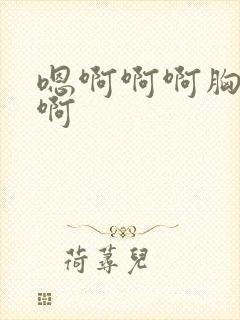 嗯啊啊啊胸
啊
荷蓴兒